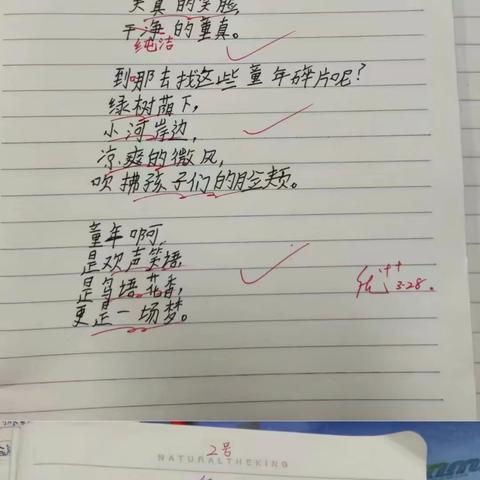 天真的笑脸,
干净的童真。
纯洁
到哪去找这些童年碎片呢?
绿树荫下,
小河岸边,
凉爽的微风,
吹拂孩子们的脸颊。
童年啊,
是欢声笑语,
是鸟语花香,
更是一场梦。
优++
3.28.
2号
NATURALTHEKING